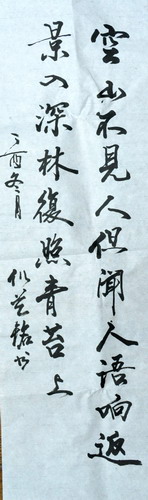 空山不見人但聞人语响返
景入深林復照青苔上
丁酉冬月